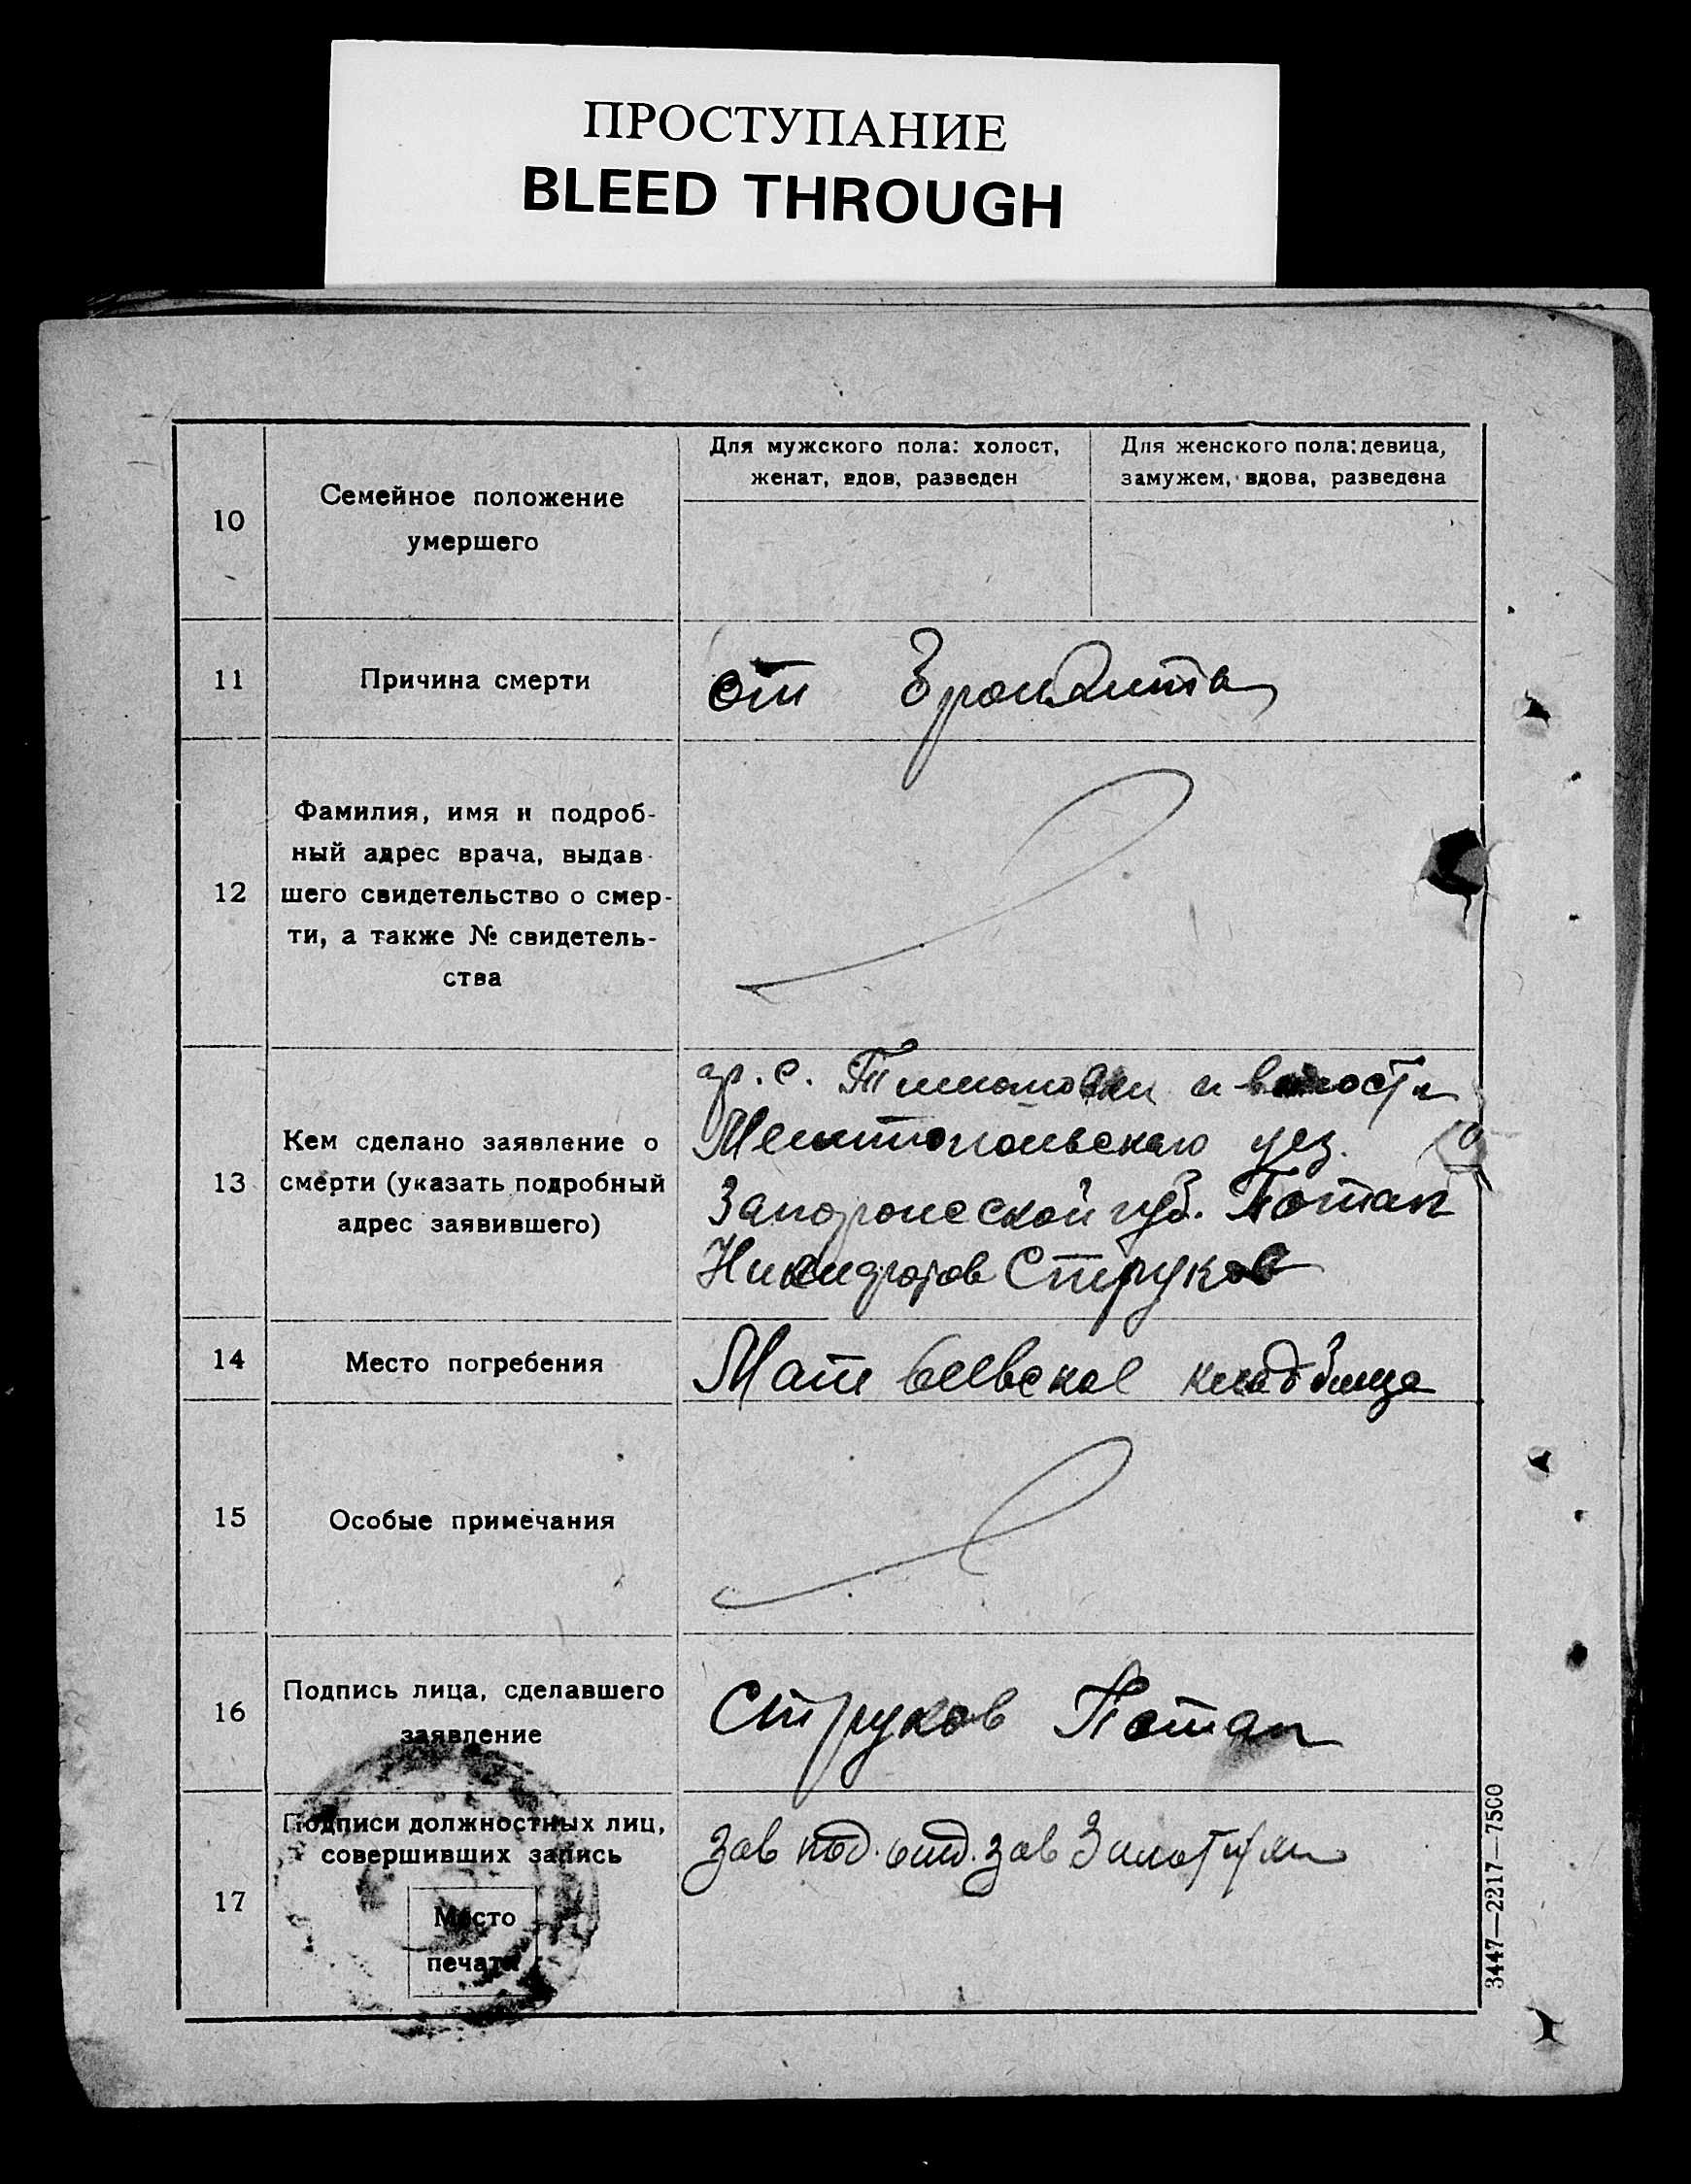 ПРОСТУПАНИЕ
BLEED THROUGH
10
Семейное положение
умершего
Для мужского пола: холост,
женат, вдов, разведен
Для женского пола: девица,
замужем, вдова, разведена
11
Причина смерти
от Бронхита
12
Фамилия, имя и подроб-
ный адрес врача, выдав-
шего свидетельство о смер-
ти, а также № свидетель-
ства
13
Кем сделано заявление о
смерти (указать подробный
адрес заявившего)
гр. с. и волости
Мелитопольскаго уез.
Запорожеской губ. Потап
Никифоров Струков
14
Место погребения
Матвеевское кладбище
15
Особые примечания
16
Подпись лица, сделавшего
заявление
Струков Потап
17
Подписи должностных лиц,
совершивших запись
Место
печати
Зав под. отд. зав
3447—2217—7500